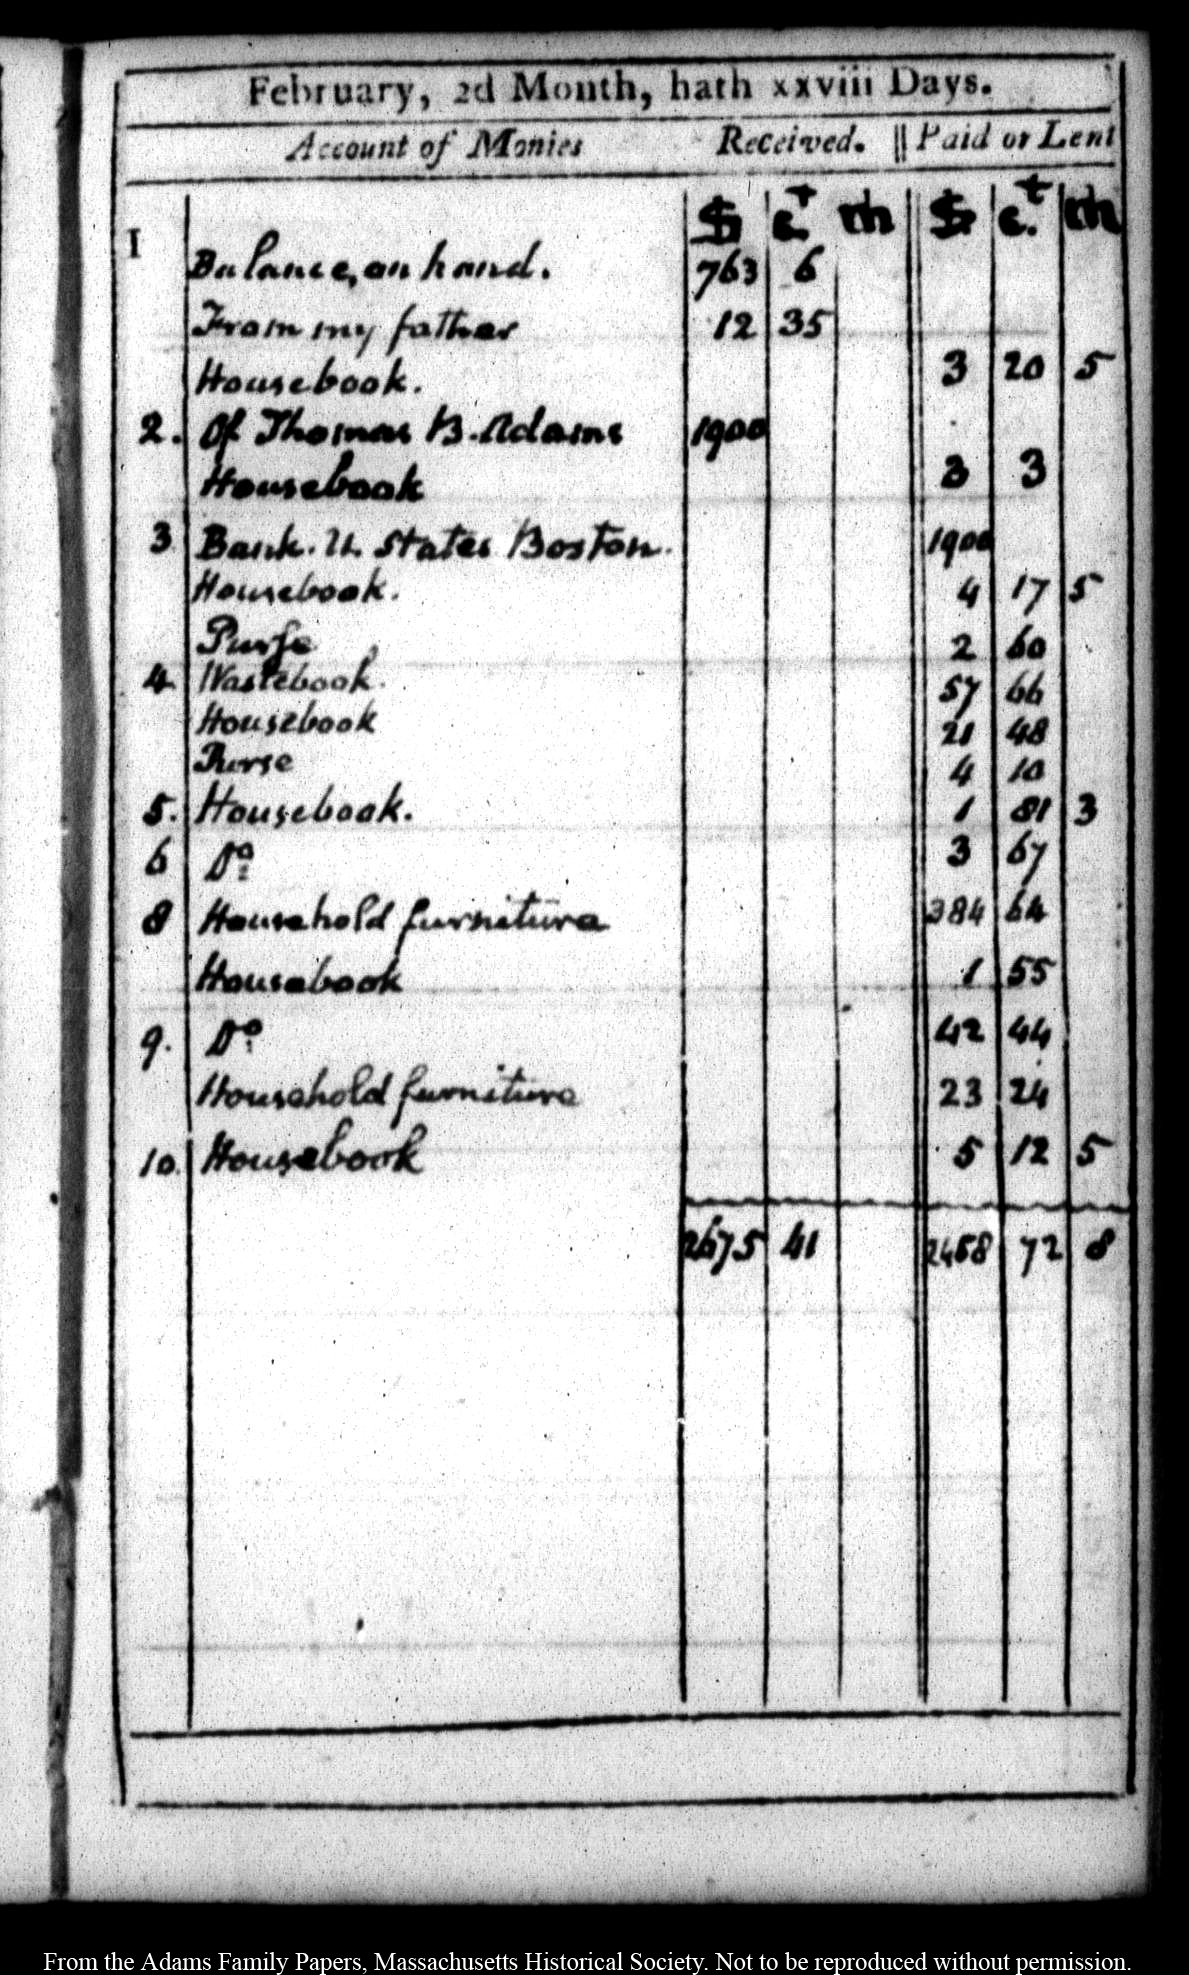 February, 2d Month, hath xxviii Days.
Account of Monies Received. || Paid or Lent
$ ct m $ c.t m
1 Balance, on hand. 763 6
From my father 12 35
Housebook. 3 20 5
2. Of Thomas B. Adams 1900
Housebook 3 3
3 Bank. U. States Boston. 1900
Housebook. 4 17 5
Purse 2 60
4 Wastebook. 57 66
Housebook 21 48
Purse 4 10
5. Housebook. 1 81 3
6 Do 3 67
8 Household furniture 384 64
Housebook 1 55
9. Do 42 44
Household furniture 23 24
10. Housebook 5 12 5
2675 41 2458 72 8
From the Adams Family Papers, Massachusetts Historical Society. Not to be reproduced without permission.